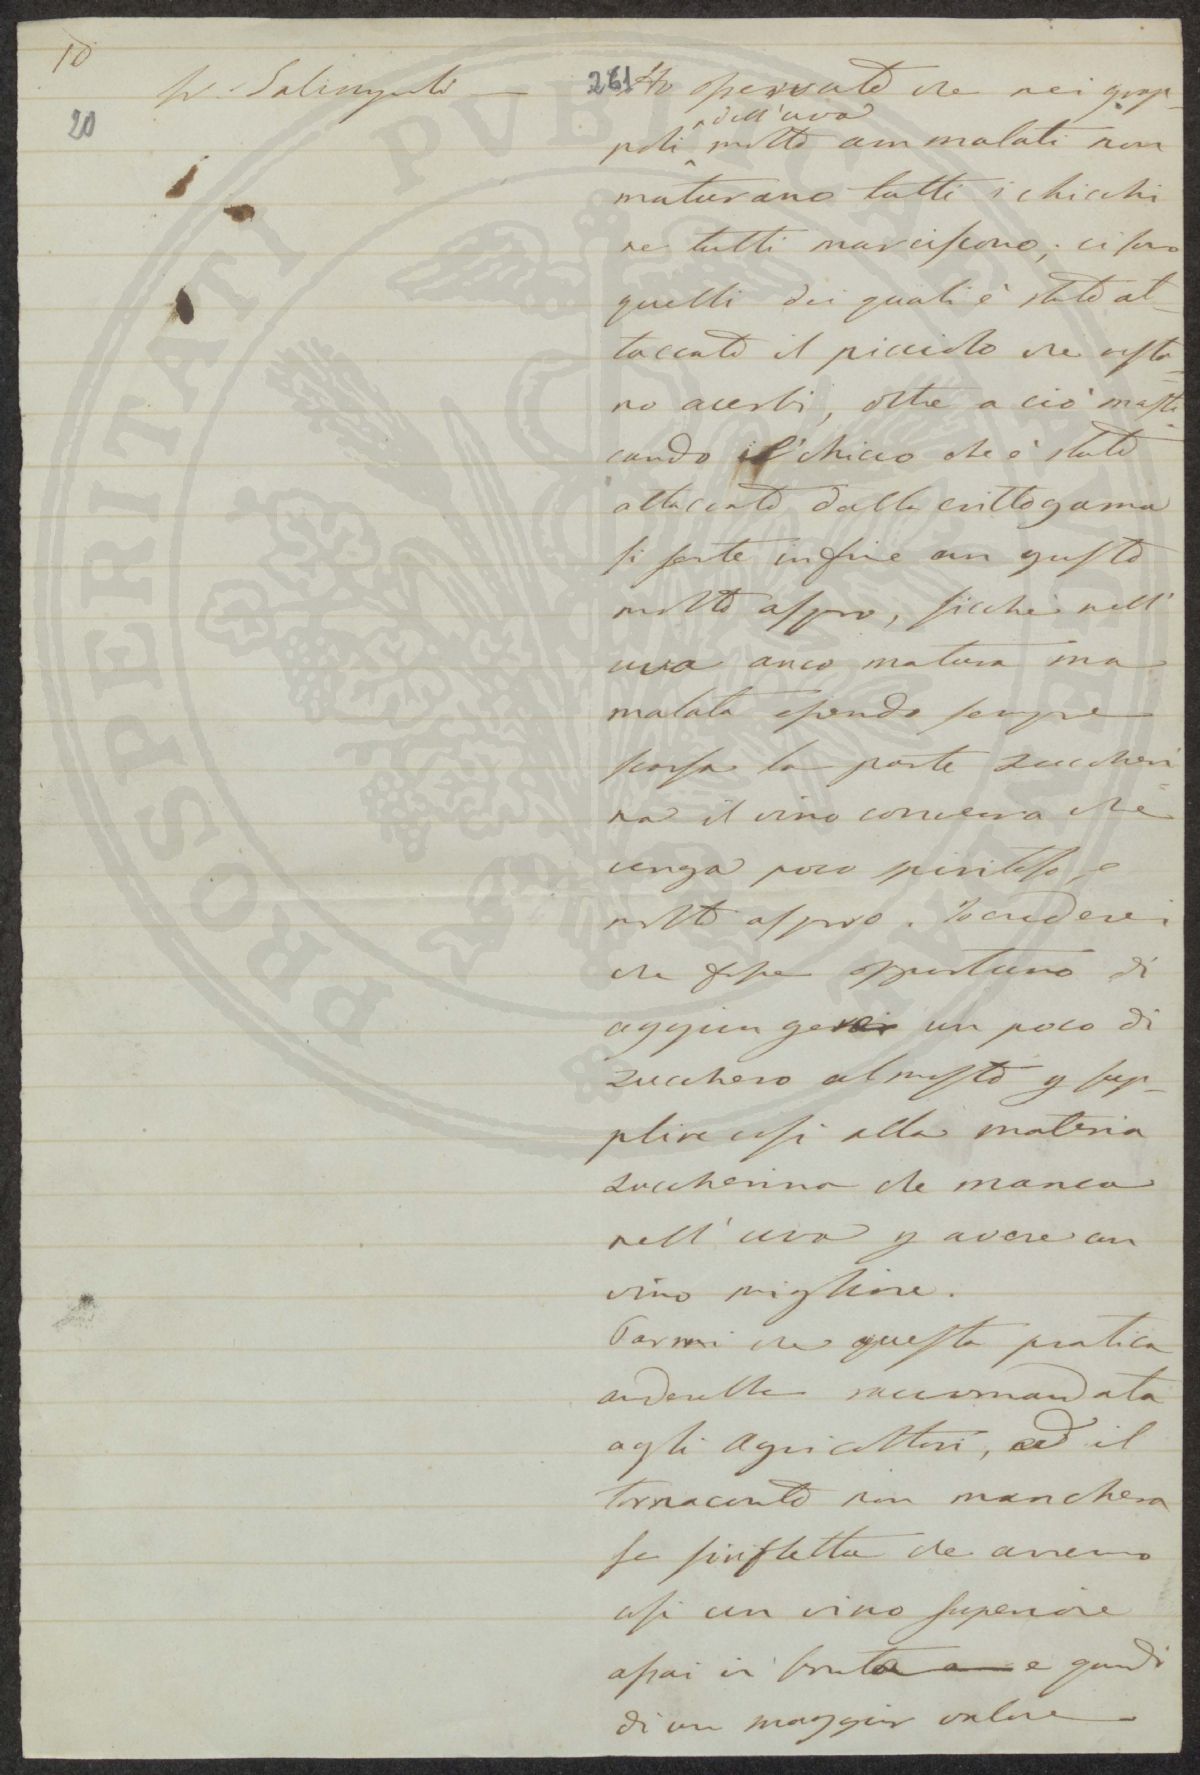 10
20
Sr. Salimgudi — 261 Ho osservato che nei grap-
dell'uva
poli molto ammalati non
maturano tutti i chicchi
ne tutti marciscono, ci sono
quelli dei quali è stato at-
taccato il picciolo che resta-
no acerbi, oltre a ciò masti-
cando il chicco che è stato
attaccato dalla crittogama
si sente infine un gusto
molto aspro, sicchè nell'
uva anco matura ma
malata essendo sempre
scarsa la parte zuccheri-
na il vino conviene che
venga poco spiritoso, e
molto aspro. Io crederei
che fosse opportuno di
aggiungervi un poco di
zucchero al mosto p sup-
plire così alla materia
zuccherina che manca
nell'uva p avere un
vino migliore.
Parmi che questa pratica
anderebbe raccomandata
agli Agricoltori, ed il
tornaconto non mancherà
se si rifletta che avremo
così un vino superiore
assai in bontà e quindi
di un maggior valore
PROSPERITATI PVBLICAE AVGENDAE